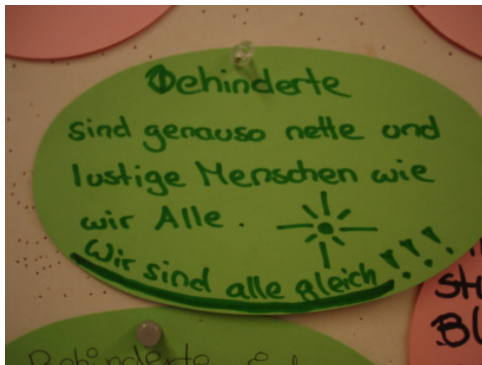 Behinderte
sind genauso nette und
lustige Menschen wie
wir Alle.
Wir sind alle gleich!!!
Behinderte